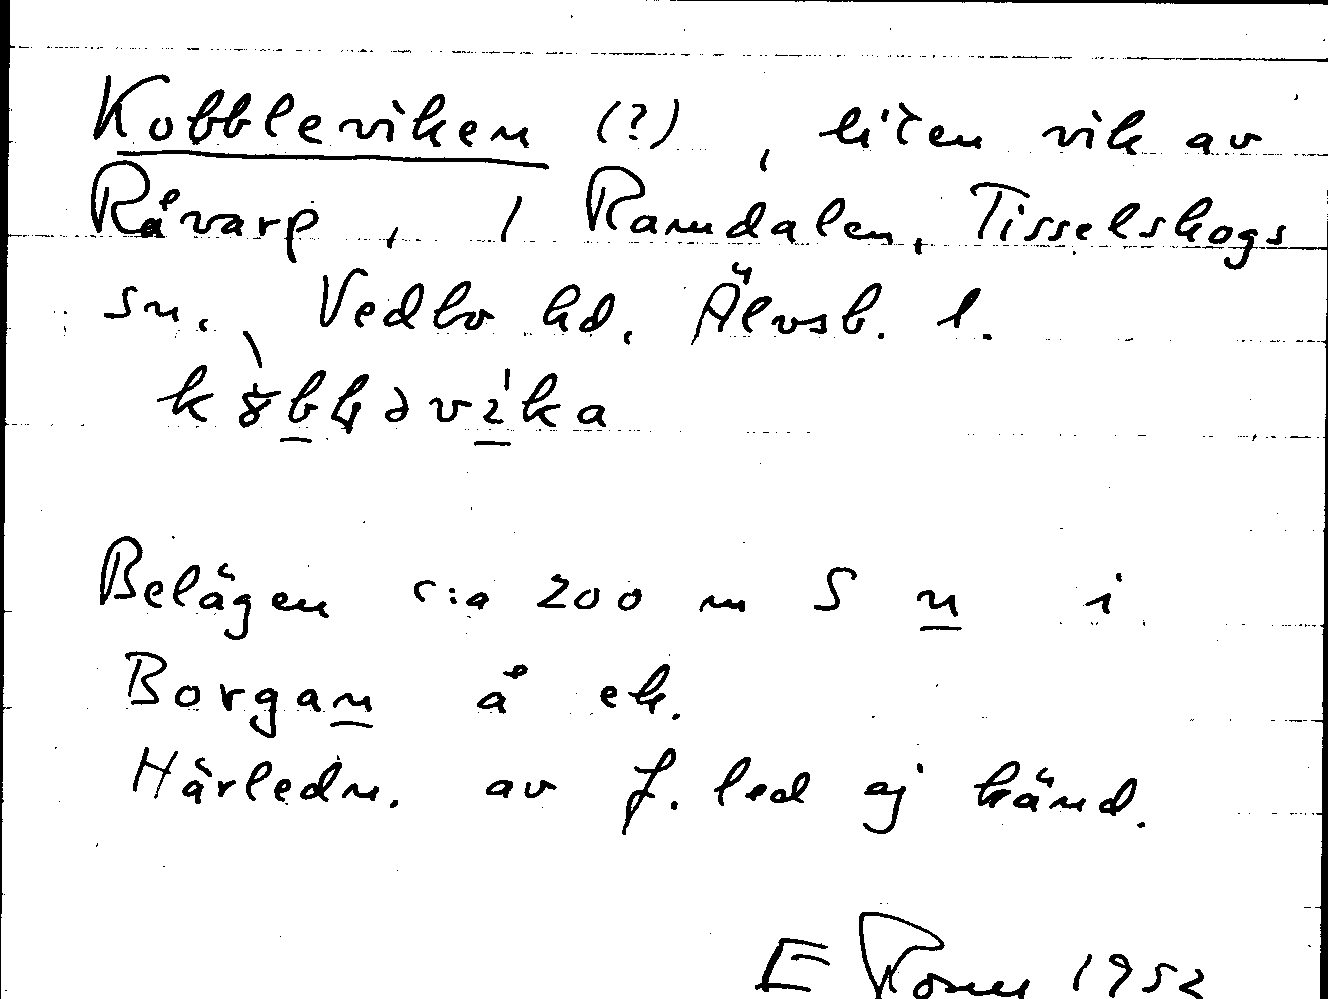 Kobbleviken (?), liten vik av
Råvarp, 1 Ramdalen, Tisselskogs
sn. Vedbo hd. Älvsb. l.
Belägen c:a 200 m S n i
Borgan å ek.
Härledn. av f. led ej känd.
E 1952